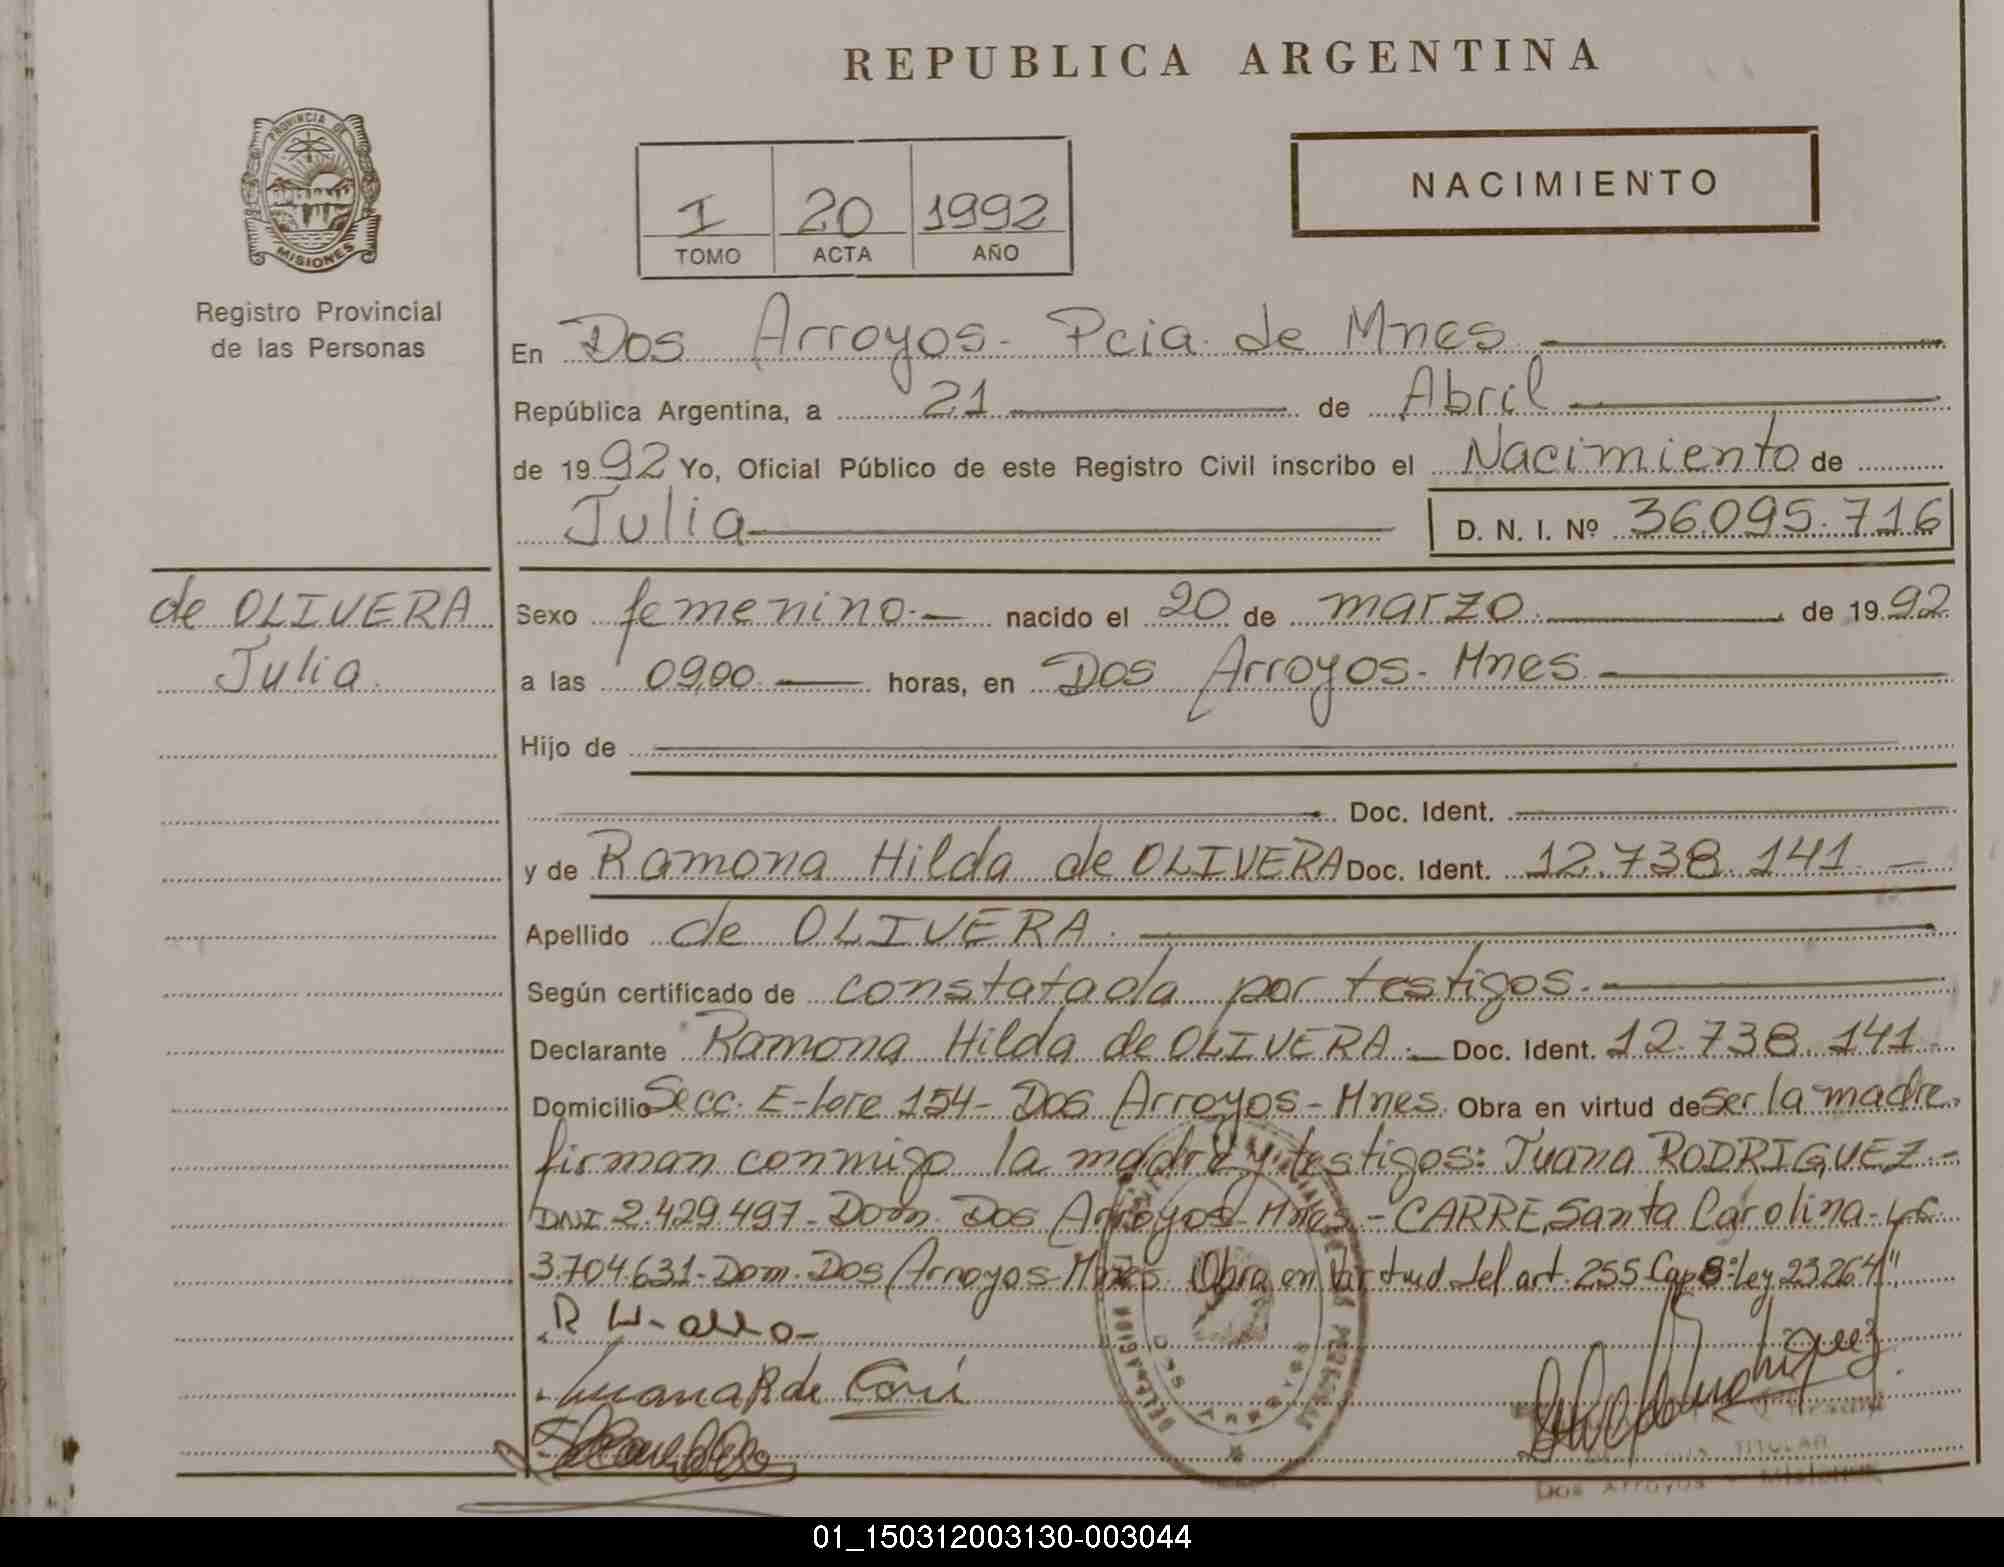 REPUBLICA ARGENTINA
PROVINCIA DE
MISIONES
Registro Provincial
de las Personas
I 20 1992
TOMO ACTA AÑO
NACIMIENTO
En Dos Arroyos - Pcia. de Mnes
República Argentina, a 21 de Abril
de 1992 Yo, Oficial Público de este Registro Civil inscribo el Nacimiento de
Julia D. N. I. Nº 36.095.716
de OLIVERA
Julia.
Sexo femenino.- nacido el 20 de marzo. de 1992
a las 09,00 horas, en Dos Arroyos - Mnes
Hijo de
Doc. Ident.
y de Ramona Hilda de OLIVERA Doc. Ident. 12.738.141.-
Apellido de OLIVERA.
Según certificado de constatada por testigos.
Declarante Ramona Hilda de OLIVERA.- Doc. Ident. 12.738.141
Domicilio Secc. E-lote 154 - Dos Arroyos - Mnes. Obra en virtud de ser la madre.
firman conmigo la madre y testigos: Juana RODRIGUEZ.-
DNI 2.429.497 - Dom. Dos Arroyos - Mnes - CARRE, Santa Carolina - LC.
3.704.631 - Dom. Dos Arroyos Mnes. Obra en virtud del art. 255 Cap 8º Ley 23264"
Juana R de
TITULAR
Dos Arroyos - Misiones
01_150312003130-003044